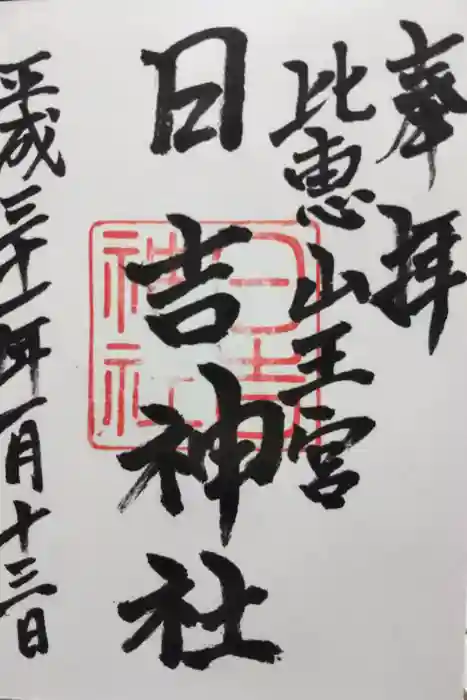 奉拝
比恵山王宮
日吉神社
日吉
神社
平成三十一年一月十三日